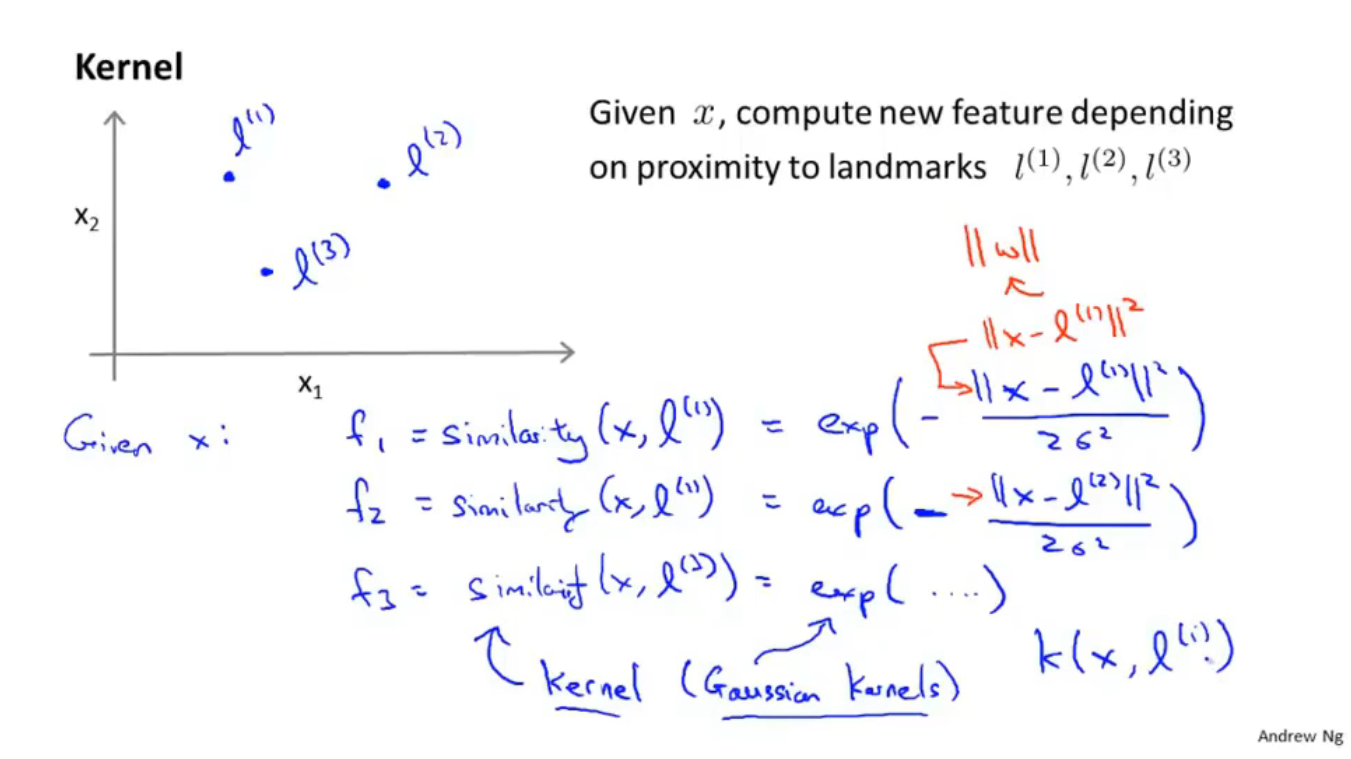 Kernel
l⁽¹⁾
l⁽²⁾
l⁽³⁾
x₂
x₁
Given x, compute new feature depending
on proximity to landmarks l⁽¹⁾, l⁽²⁾, l⁽³⁾
||w||
||x - l⁽¹⁾||²
Given x: f₁ = similarity(x, l⁽¹⁾) = exp(- ||x - l⁽¹⁾||² / 2σ²)
f₂ = similarity(x, l⁽¹⁾) = exp(- ||x - l⁽²⁾||² / 2σ²)
f₃ = similarity(x, l⁽³⁾) = exp(....)
k(x, l⁽ⁱ⁾)
kernel (Gaussian kernels)
Andrew Ng